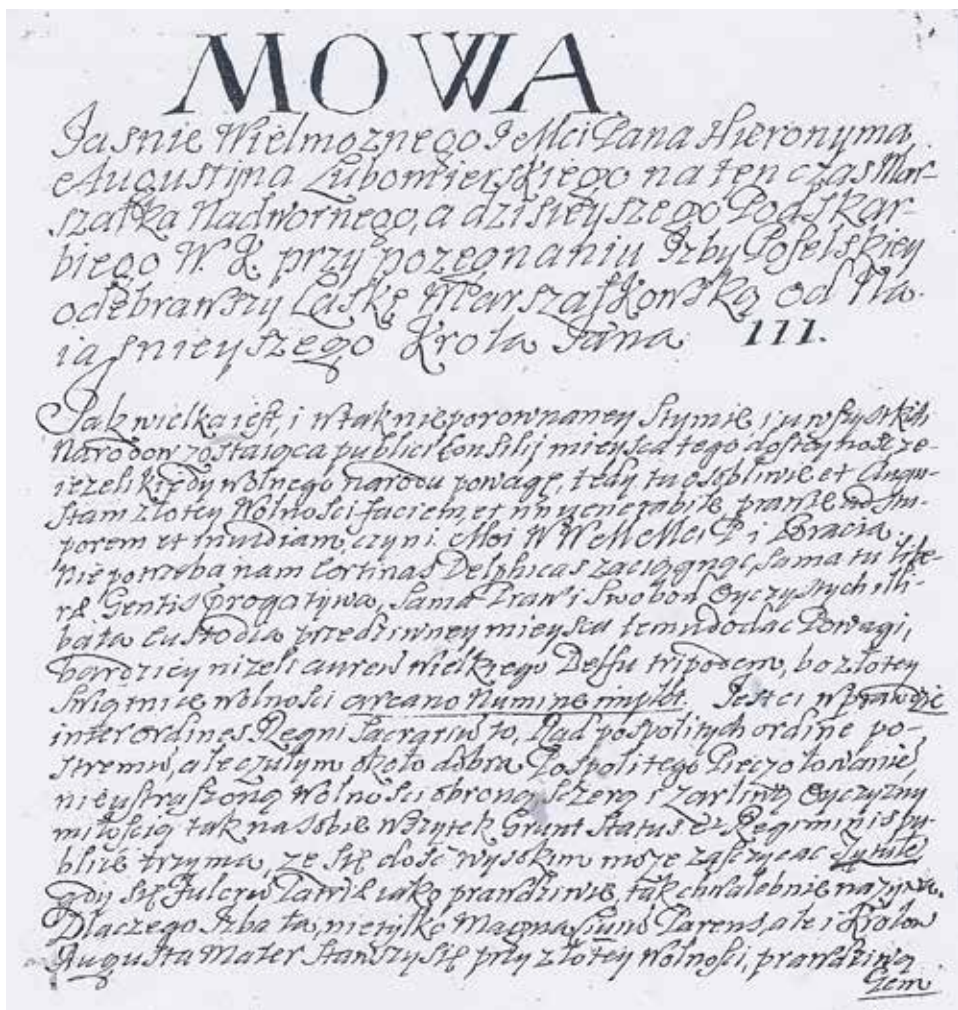 MOWA
Jasnie Wielmoznego JeMci Pana Hieronyma
Augustyna Lubomierskiego na ten czas Mar-
szałka Nadwornego, a dzisieyszego Podskar-
biego W. K. przy pozegnaniu Izby Poselskiey
odebrawszy Laskę Marszałkowską od Na-
iasnieyszego Krola Jana III.
Jak wielka iest, i w tak nieporownaney stymie i u wszystkich
Narodow zostaiąca publici Consilij mieysca tego dostoynosc ze-
iezeli kiedy wolnego narodu powagę, tedy tu osobliwie et Augu-
stam złotey Wolnosci faciem, et venerabile prawie
porem et invidiam, czyni. Moi W W M M Mci P i Bracia
Nie potrzeba nam Cortinas Delphicas zaciągnąc, sama tu libe-
ræ Gentis prerogatywa, sama Praw i Swobod Oyczystych illi-
bata Custodia przedziwney mieyscu temu dodac Powagi,
bardziey nizeli aureus wielkiego Delfu tripodem, bo złotey
Swięnicę wolnosci arcano Numine implet. Jestci wprawdzie
inter ordines Regni Sacrariu to, Rad pospolitych ordine po-
stremu, ale czułym około dobra Pospolitego Pieczołowanie,
nieustraszoną Wolnosci obroną, sczerą i zarliwą Oyczyzny
miłoscią tak na sobie wszytek Grunt Status et Regiminis pu-
blici trzyma, ze się dosc wysokim moze zasczycac Tytułe
gdy się Fulcru Patriæ iako prawdziwie, tak chwalebnie nazywa.
Dlaczego Izba ta, nietylko Magna Parens, ale i Krolow
Augusta Mater stawszy się przy złotey Wolnosci, prawdziwą
Gem